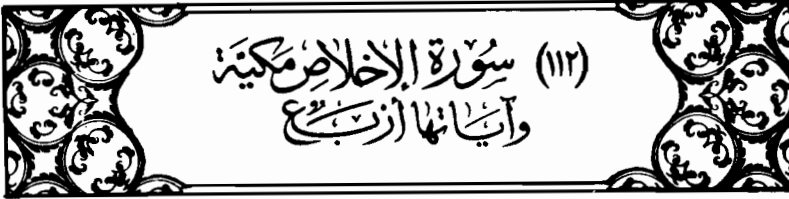 (١١٢) سُورَة الإِخلاصِ مَكيَّة
وَآيَاتها أربَع